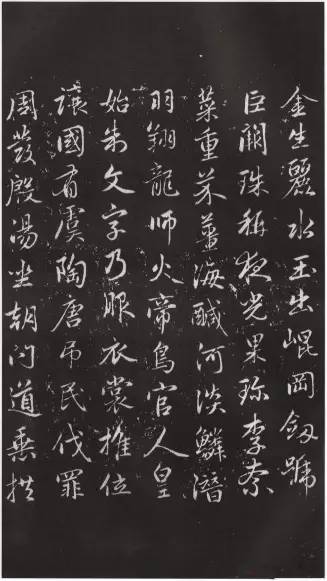 金生麗水玉出崐岡劔號
巨闕珠稱夜光果珎李柰
菜重芥薑海鹹河淡鱗潛
羽翔龍師火帝鳥官人皇
始制文字乃服衣裳推位
讓國有虞陶唐弔民伐罪
周發殷湯坐朝問道垂拱